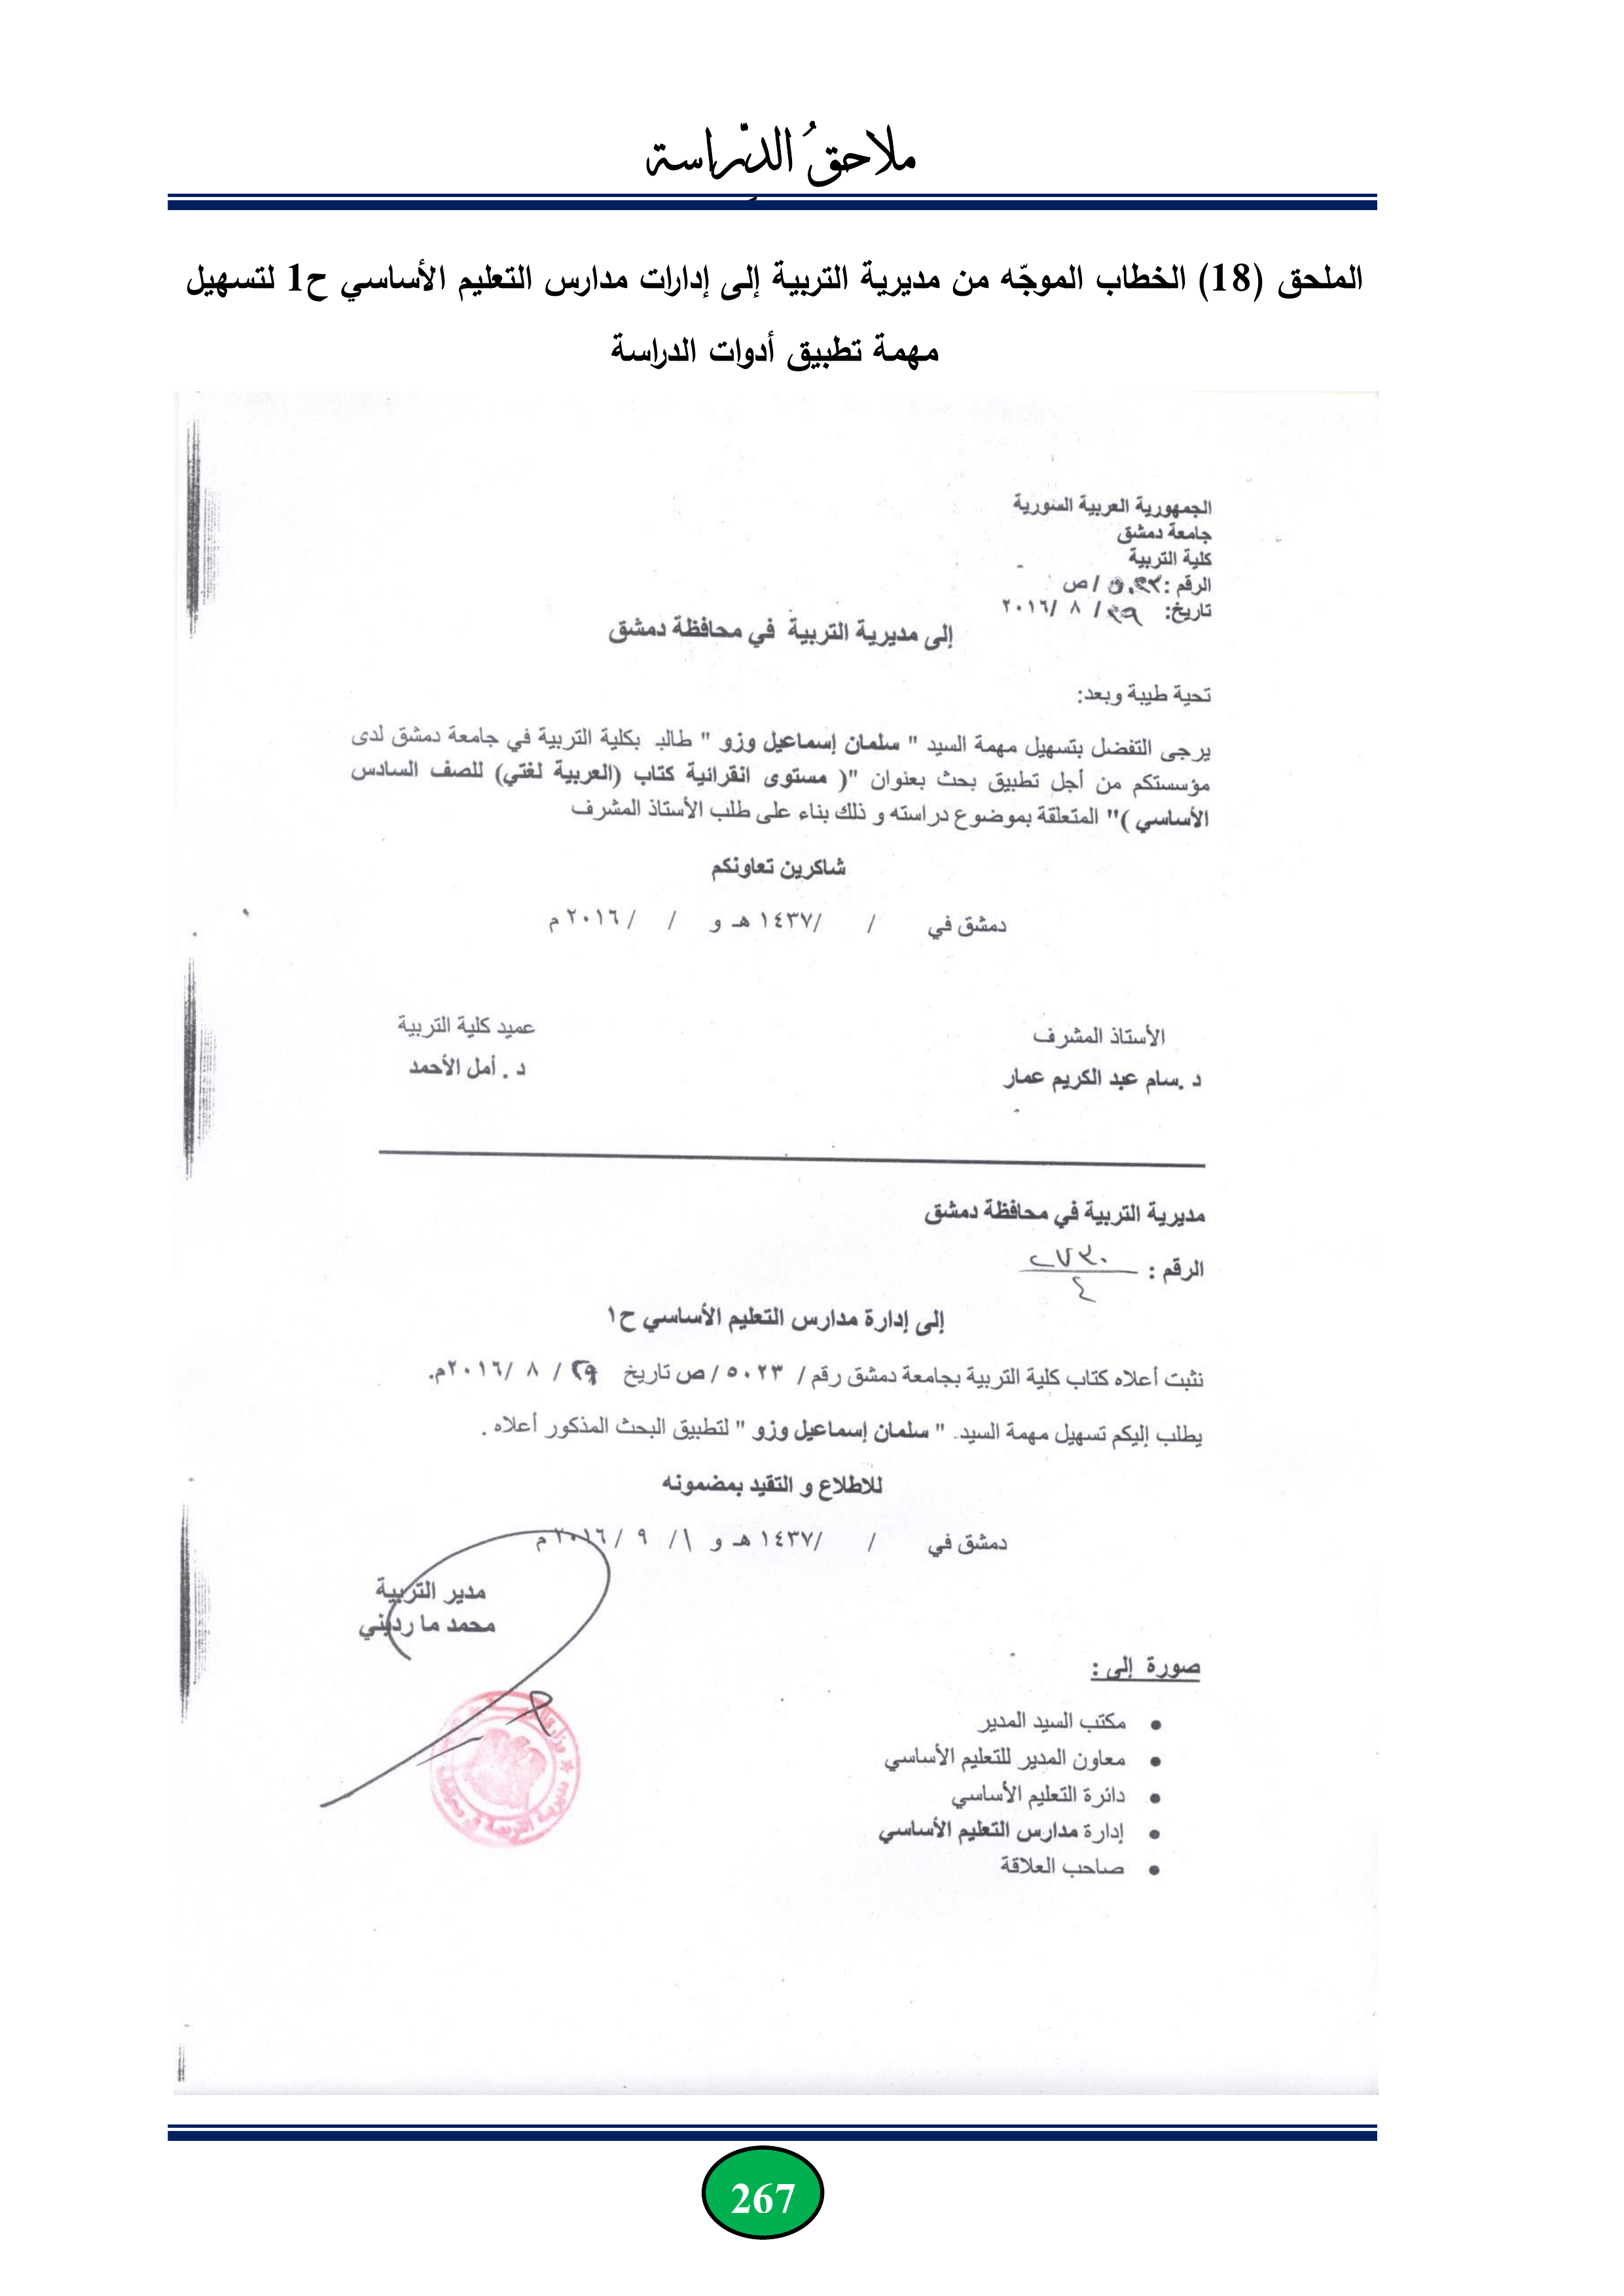 ملاحقُ الدِّراسة
الملحق (18) الخطاب الموجّه من مديرية التربية إلى إدارات مدارس التعليم الأساسي ح1 لتسهيل
مهمة تطبيق أدوات الدراسة
الجمهورية العربية السورية
جامعة دمشق
كلية التربية
الرقم : ٥٠٢٣ / ص
تاريخ: ٢٩ / ٨ /٢٠١٦
إلى مديرية التربية في محافظة دمشق
تحية طيبة وبعد:
يرجى التفضل بتسهيل مهمة السيد " سلمان إسماعيل وزو " طالب بكلية التربية في جامعة دمشق لدى
مؤسستكم من أجل تطبيق بحث بعنوان "( مستوى انقرائية كتاب (العربية لغتي) للصف السادس
الأساسي )" المتعلقة بموضوع دراسته و ذلك بناء على طلب الأستاذ المشرف
شاكرين تعاونكم
دمشق في / /١٤٣٧ هـ و / / ٢٠١٦ م
الأستاذ المشرف
د .سام عبد الكريم عمار
عميد كلية التربية
د . أمل الأحمد
مديرية التربية في محافظة دمشق
الرقم :
إلى إدارة مدارس التعليم الأساسي ح١
نثبت أعلاه كتاب كلية التربية بجامعة دمشق رقم / ٥٠٢٣ / ص تاريخ ٢٩ / ٨ /٢٠١٦م.
يطلب إليكم تسهيل مهمة السيد " سلمان إسماعيل وزو " لتطبيق البحث المذكور أعلاه .
للاطلاع و التقيد بمضمونه
دمشق في / /١٤٣٧ هـ و ١/ ٩ / ٢٠١٦ م
مدير التربية
محمد مارديني
صورة إلى :
• مكتب السيد المدير
• معاون المدير للتعليم الأساسي
• دائرة التعليم الأساسي
• إدارة مدارس التعليم الأساسي
• صاحب العلاقة
267